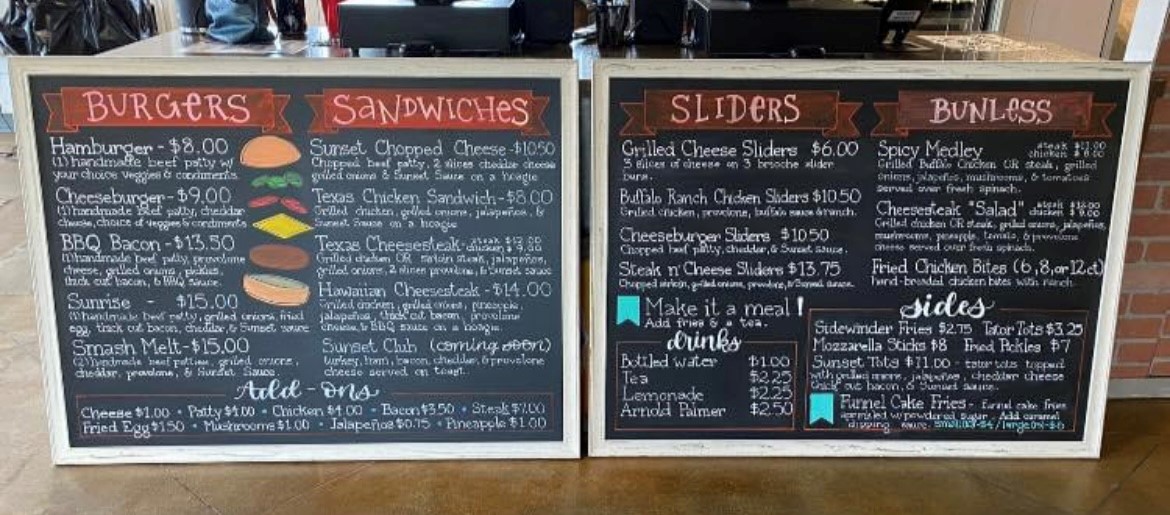 BURGERS
Hamburger - $8.00
(1) handmade beef patty w/
your choice veggies & condiments.
Cheeseburger - $9.00
(1) handmade beef patty, cheddar
cheese, choice of veggies & condiments
BBQ Bacon - $13.50
(1) handmade beef patty, provolone
cheese, grilled onions, pickles,
thick cut bacon, & BBQ sauce.
Sunrise - $15.00
(1) handmade beef patty, grilled onions, fried
egg, thick cut bacon, cheddar, & Sunset sauce
Smash Melt - $15.00
(2) handmade beef patties, grilled onions,
cheddar, provolone, & Sunset Sauce.
SANDWICHES
Sunset Chopped Cheese - $10.50
Chopped beef patty, 2 slices cheddar cheese
grilled onions & Sunset Sauce on a hoagie
Texas Chicken Sandwich - $8.00
Grilled chicken, grilled onions, jalapeños, &
Sunset Sauce on a hoagie
Texas Cheesesteak - steak $12.00
chicken $9.00
Grilled chicken OR sirloin steak, jalapeños,
grilled onions, 2 slices provolone, & Sunset sauce
Hawaiian Cheesesteak - $14.00
Grilled chicken, grilled onions, pineapple,
jalapeños, thick cut bacon, provolone
cheese, & BBQ sauce on a hoagie.
Sunset Club (coming soon)
turkey, ham, bacon, cheddar, & provolone
cheese served on toast.
Add-ons
Cheese $1.00 • Patty $4.00 • Chicken $4.00 • Bacon $3.50 • Steak $7.00
Fried Egg $1.50 • Mushrooms $1.00 • Jalapeños $0.75 • Pineapple $1.00
SLIDERS
Grilled Cheese Sliders $6.00
3 slices of cheese on 3 brioche slider
buns.
Buffalo Ranch Chicken Sliders $10.50
Grilled chicken, provolone, buffalo sauce & ranch.
Cheeseburger Sliders $10.50
Chopped beef patty, cheddar, & Sunset Sauce.
Steak n' Cheese Sliders $13.75
Chopped sirloin, grilled onions, provolone, & Sunset sauce.
Make it a meal!
Add fries & a tea.
drinks
Bottled water $1.00
Tea $2.25
Lemonade $2.25
Arnold Palmer $2.50
BUNLESS
Spicy Medley steak $11.00
chicken $8.00
Grilled Buffalo Chicken OR steak, grilled
onions, jalapeños, mushrooms, & tomatoes
served over fresh spinach.
Cheesesteak "Salad" steak $12.00
chicken $9.00
Grilled chicken OR steak, grilled onions, jalapeños,
mushrooms, pineapple, tomato, & provolone
cheese served over fresh spinach.
Fried Chicken Bites (6, 8, or 12ct)
hand-breaded chicken bites with ranch.
sides
Sidewinder Fries $2.75 Tator Tots $3.25
Mozzarella Sticks $8 Fried Pickles $7
Sunset Tots $11.00 - tator tots topped
with grilled onions, jalapeños, cheddar cheese
thick cut bacon, & Sunset sauce.
Funnel Cake Fries - funnel cake fries
sprinkled w/ powdered sugar. Add caramel
dipping sauce.